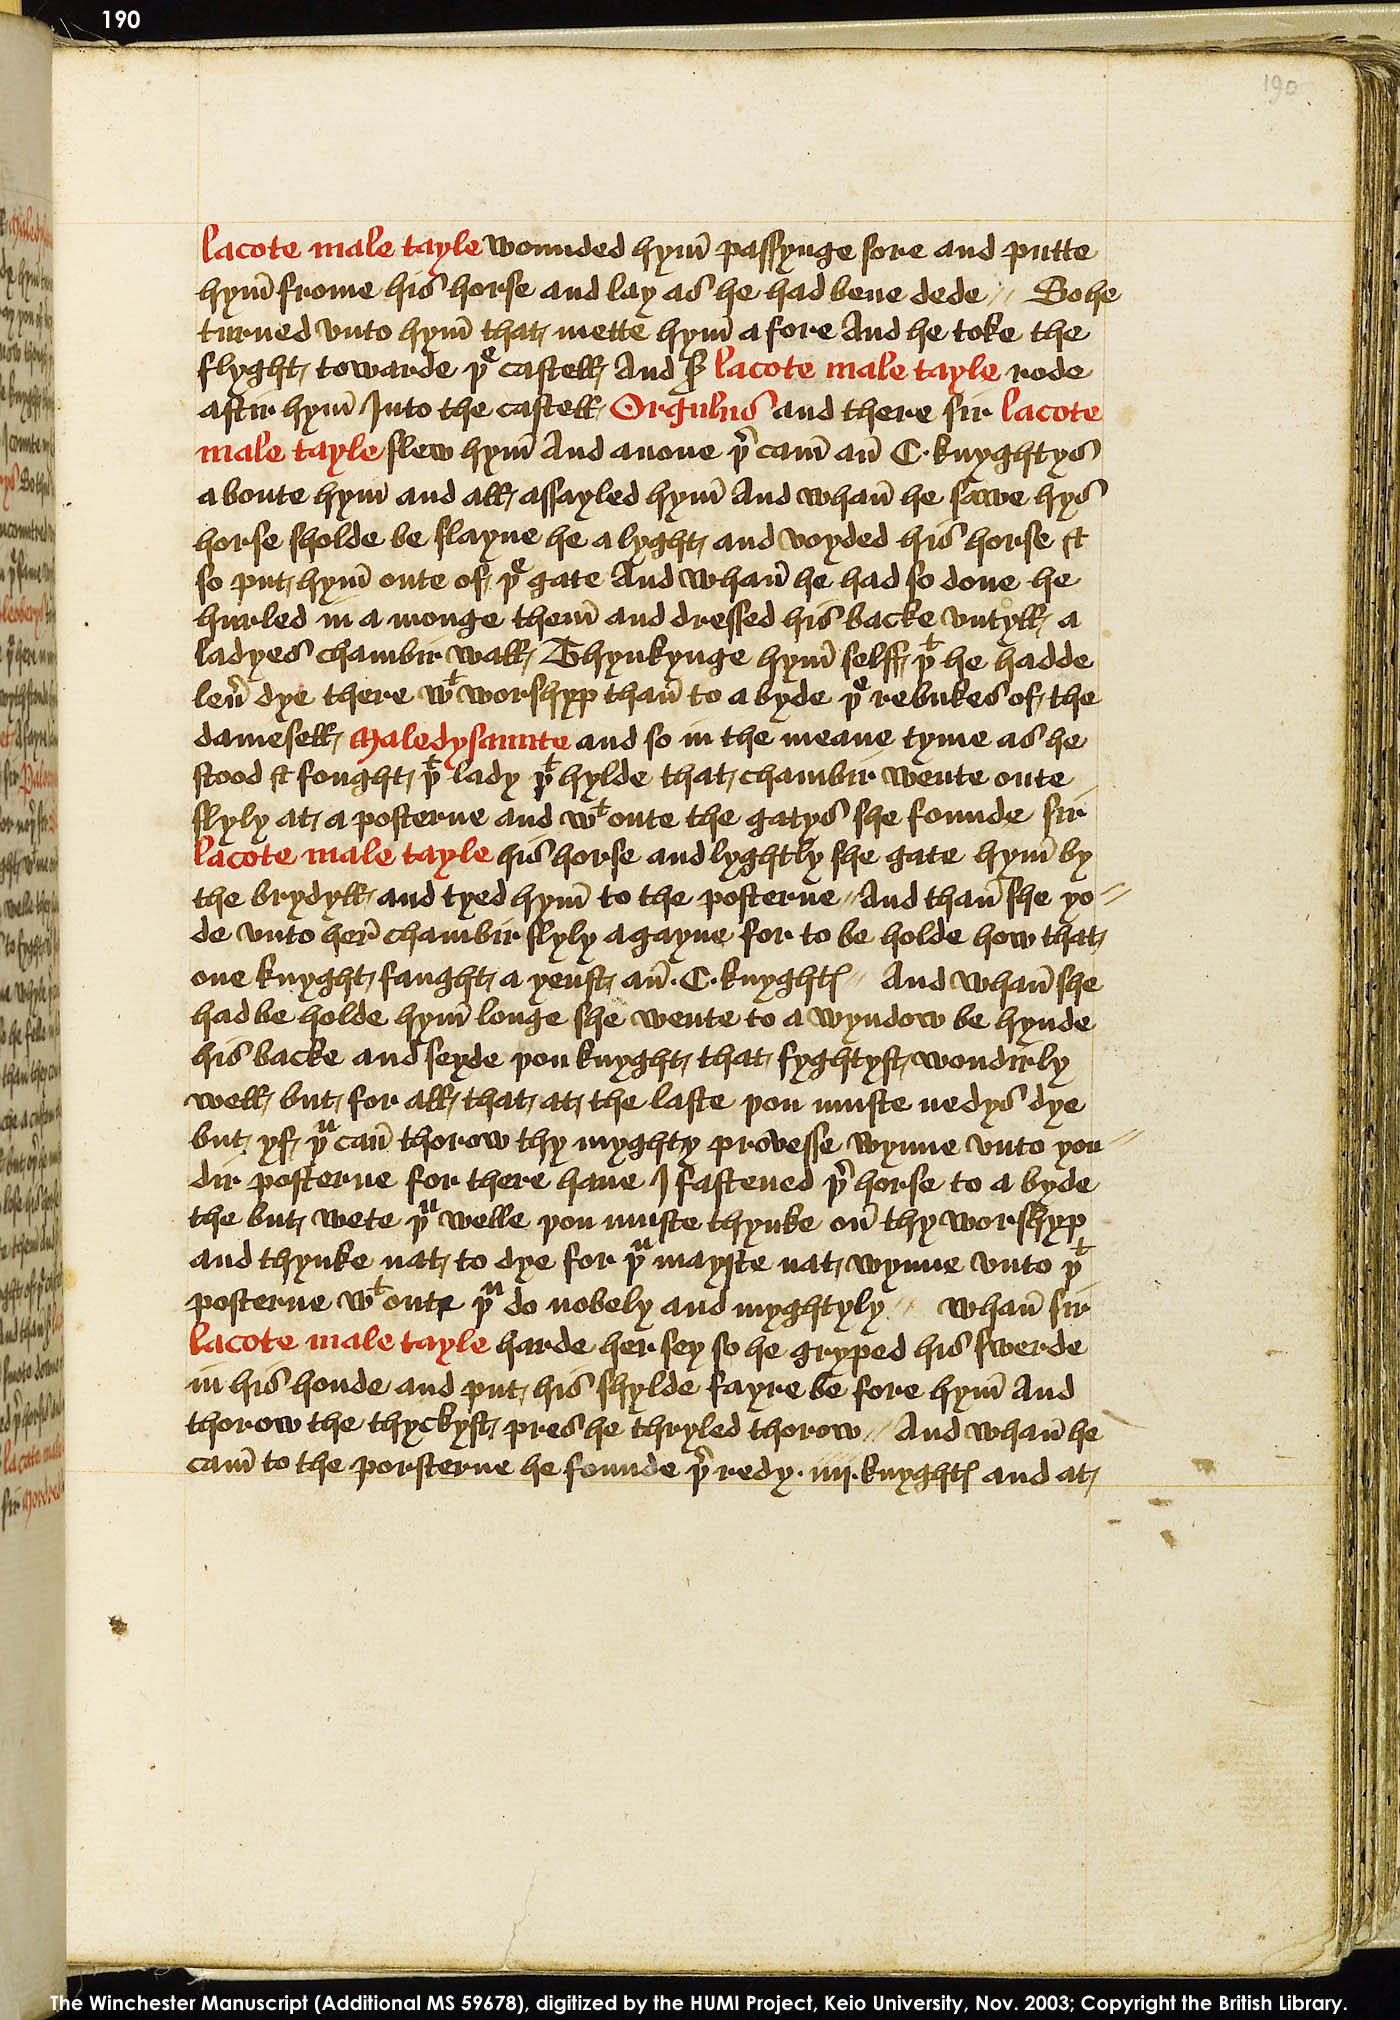 190
190
lacote male tayle wounded hym̄ passynge sore and putte
hym̄ frome his horse and lay as he had bene dede // So he
turned vnto hym̄ that mette hym̄ a fore And he toke the
flyght towarde þe castell And sr lacote male tayle rode
aftir hym̄ Into the castell Orgulus and there sir lacote
male tayle slew hym̄ And anone þr cam̄ an̄ C. knyghtys
a boute hym̄ and all assayled hym̄ And whan̄ he sawe hys
horse sholde be slayne he a lyght and voyded his horse &
so put hym̄ oute of þe gate And whan̄ he had so done he
hurled in a monge them̄ and dressed his backe vntyll a
ladyes chambir wall Thynkynge hym̄ selff þt he hadde
leū dye there wt worshyp than̄ to a byde þe rebukes of the
damesell Maledysaunte and so in the meane tyme as he
stood & fought þt lady þt hylde that chambir wente oute
slyly at a posterne and wt oute the gatys she founde sir
lacote male tayle his horse and lyghtly she gate hym̄ by
the brydyll and tyed hym̄ to the posterne // And than̄ she yo //
de vnto her̄ chambir slyly agayne for to be holde how that
one knyght faught a yenst an̄ . C . knyghtꝭ // And whan̄ she
had be holde hym̄ longe she wente to a wyndow be hynde
his backe and seyde þou knyght that fyghtyst wondirly
well but for all that at the laste þou muste nedys dye
but yf þu can̄ thorow thy myghty provesse wynne vnto yon //
dir posterne for there haue I fastened þr horse to a byde
the but wete þu welle þou muste thynke on̄ thy worshyp
and thynke nat to dye for þu mayste nat wynne vnto þt
posterne wt oute þu do nobely and myghtyly // Whan̄ sir
lacote male tayle harde her sey so he gryped his swerde
in his honde and put his shylde fayre be fore hym̄ And
thorow the thyckyst pres he thryled thorow // And whan̄ he
cam̄ to the porsterne he founde þr redy . iiij . knyghtꝭ and at
The Winchester Manuscript (Additional MS 59678), digitized by the HUMI Project, Keio University, Nov. 2003; Copyright the British Library.